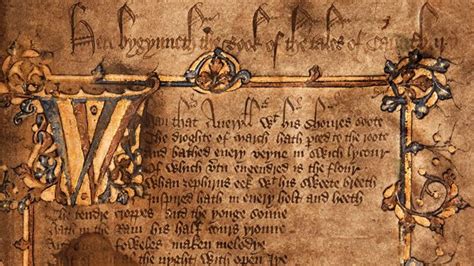 Here bygynneth the Book of the tales of Caunterbury
Whan that Aueryll wt his shoures soote
The droghte of march hath pced to the roote
And bathed euery veyne in swich lycour
Of which vtu engendred is the flour
Whan zephirus eek wt his sweete breeth
Inspired hath in euery holt and heeth
The tendre croppes and the yonge sonne
Hath in the Ram his half cours yronne
foweles maken melodye
al the nyght with open Iye